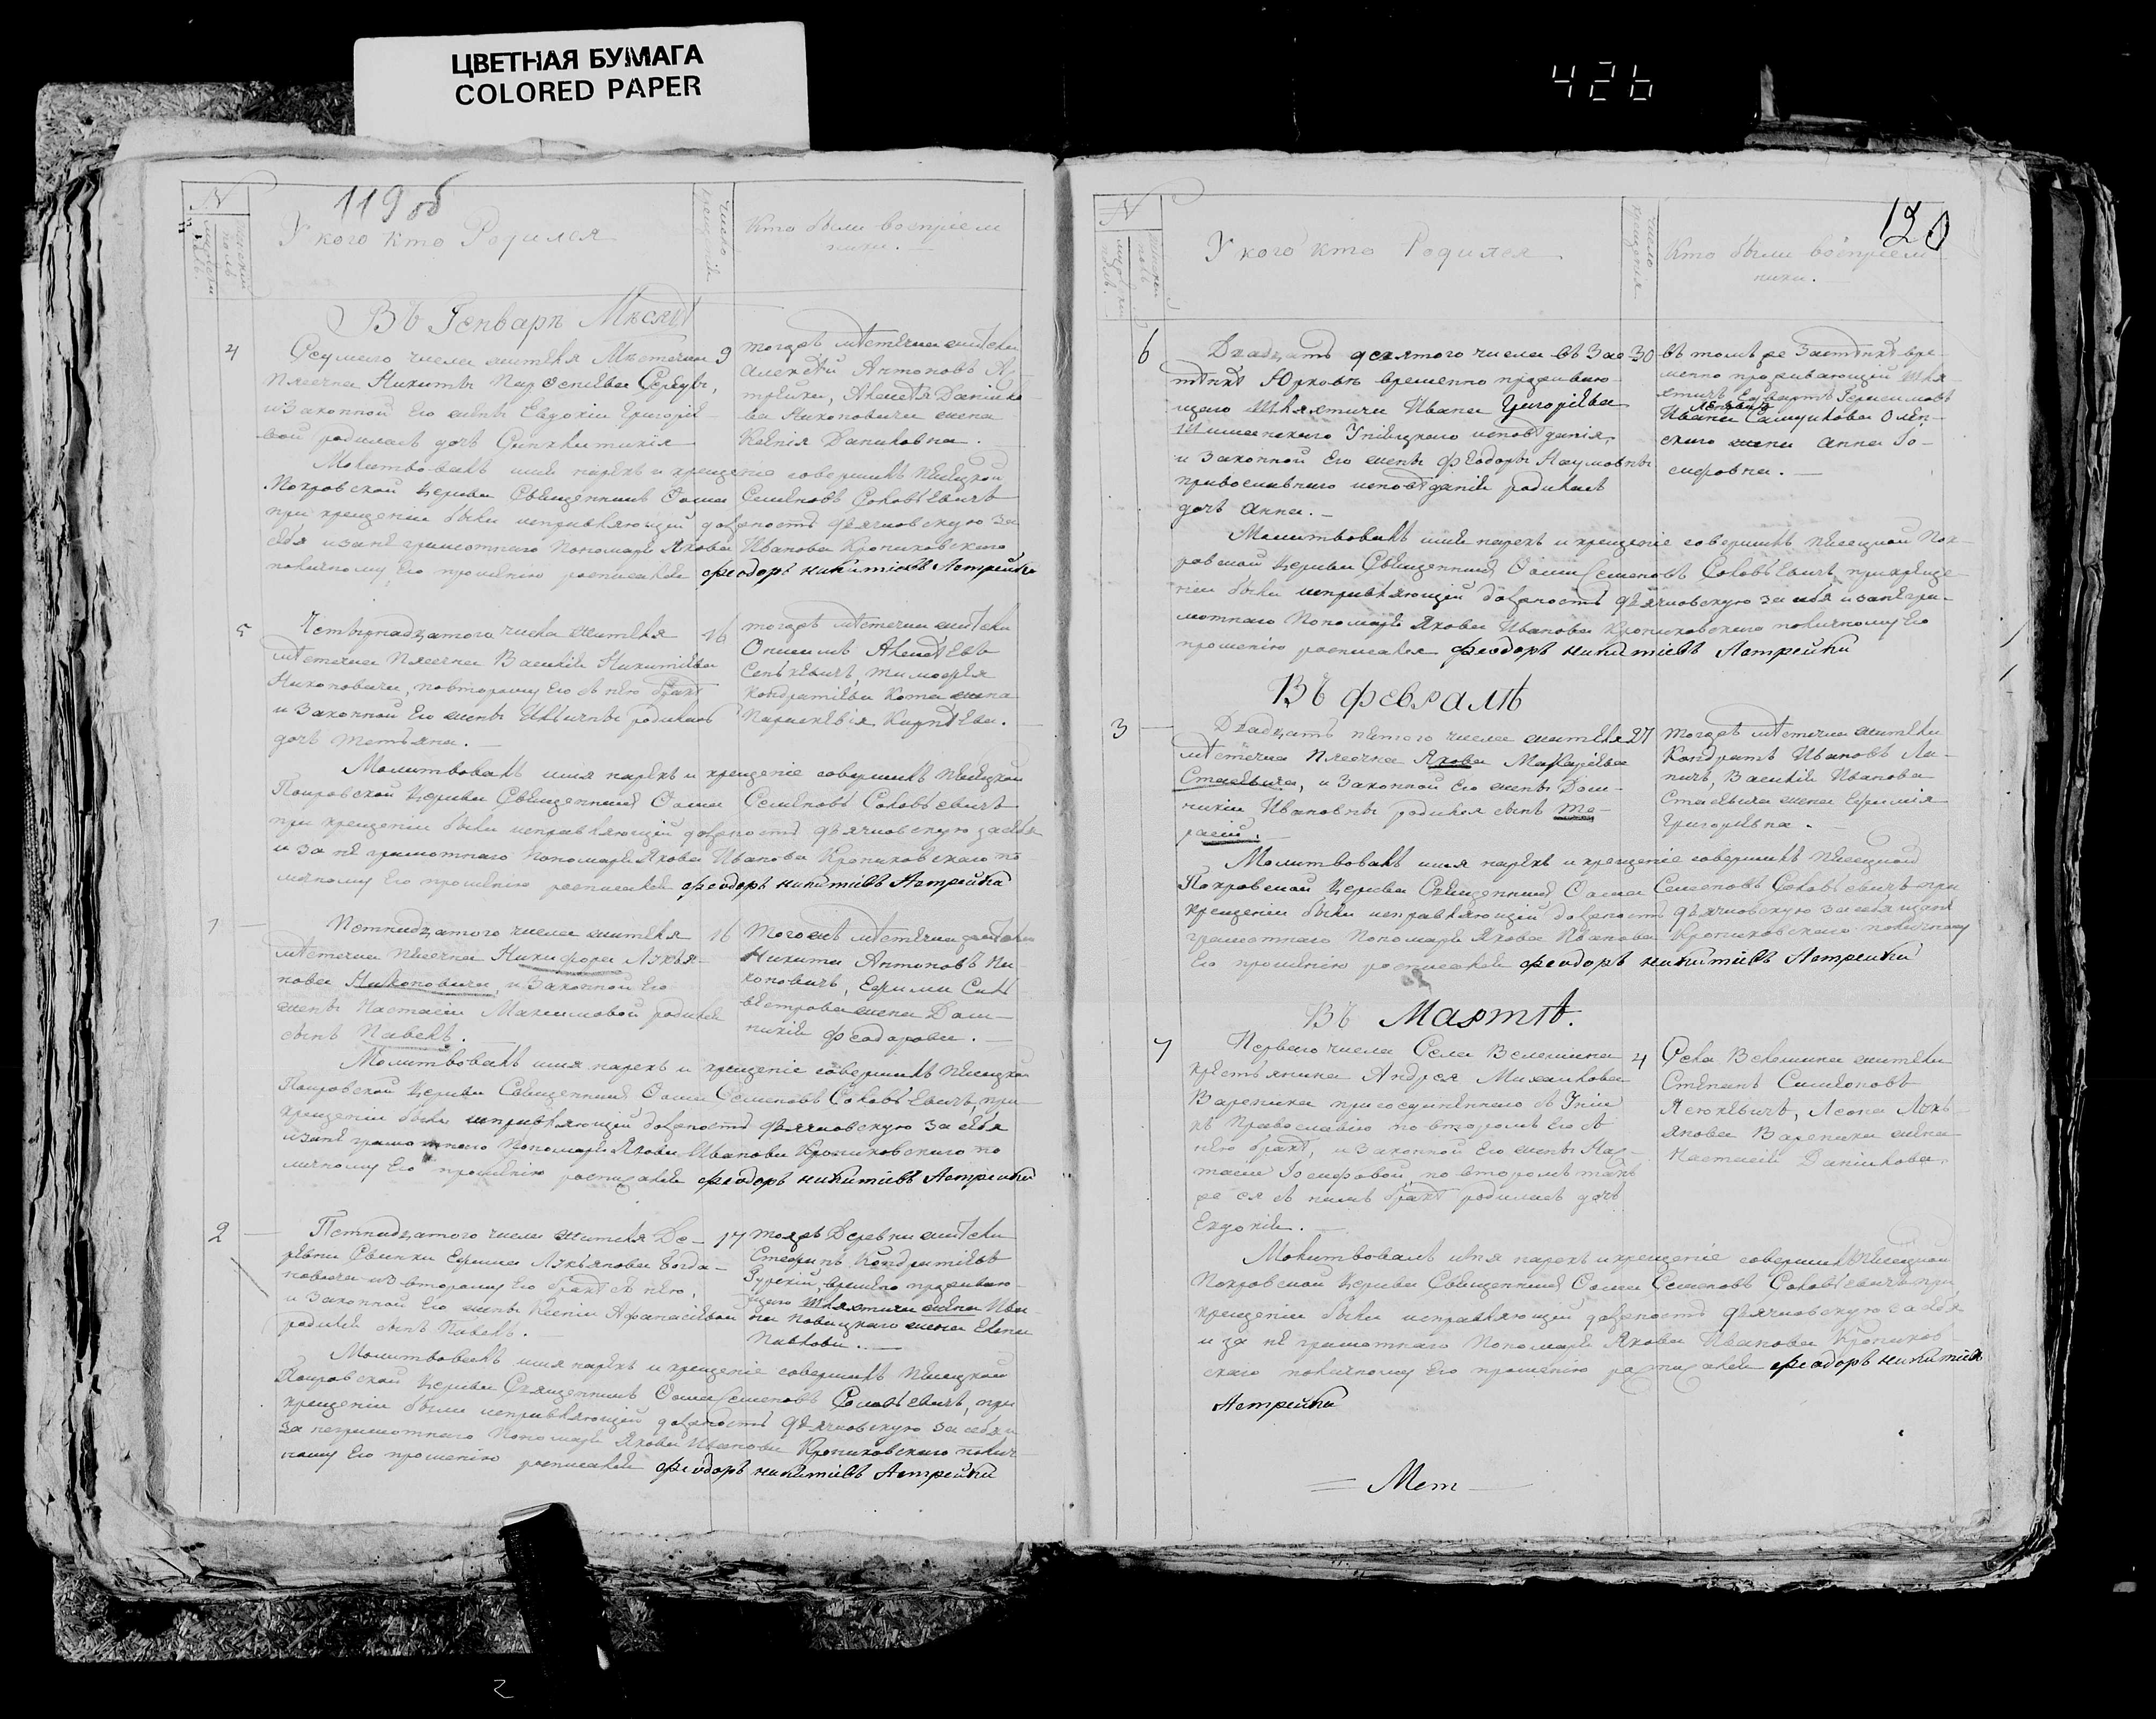 ЦВЕТНАЯ БУМАГА
COLORED PAPER
426
119 об
N
У кого кто Родился
Число крещенія
Кто были воспріем
ники.
Въ Генварѣ Мѣсяцѣ
4
Седмаго числа жителя Мѣстечка
9
Пясечна Никиты
изъ законной Его жены Евдокіи Григорѣе
вой родилась дочь Синклитикія
тогожъ мѣстечка жители
Алексѣй Антоновъ А
трейка, Алексѣя Данило
ва Никоновича жена
Ксенія Даниловна.
Молитвовалъ имя нарекъ и крещеніе совершилъ Пясецкой
Покровской церкви Священникъ Фома Семеновъ Соловьевичъ
при крещеніи были исправляющій должность дьячковскую за
себя и за неграмотнаго Пономаря Якова Иванова Кропиковского
поличному Его прошенію росписался феодоръ никитіевъ Ястрейко
5
Четырнадцатого числа жителя
16
мѣстечка Пясечна Василія Никитіева
Никоновича, повторому Его съ нею бракѣ
и законной Его жены родилась
дочь Татьяна.
тогожъ мѣстечка жители
Онисимъ Алексѣевъ
Сенкевичъ, тимофея
Кондратіева Кота жена
Параскевія Карпѣева.
Молитвовалъ имя нарекъ и крещеніе совершилъ Пясецкой
Покровской церкви Священникъ Фома Семеновъ Соловьевичъ
при крещеніи были исправляющій должность дьячковскую за себя
и за не грамотнаго Пономаря Якова Иванова Кропиковскаго по
личному Его прошенію росписался феодоръ никитіевъ Ястрейка
1
Пятнадцатого числа жителя
16
мѣстечка Пясечна Никифора Лукья
нова Никоновича, и законной Его
жены Настасіи Максимовой родился
сынъ Павелъ.
Тогожъ мѣстечка жители
Никита Антоновъ Ни
коновичъ, Ефима Сил
вестрова жена Дом
никія Феодорова.
Молитвовалъ имя нарекъ и крещеніе совершилъ Пясецкой
Покровской церкви Священникъ Фома Семеновъ Соловьевичъ, при
крещеніи были исправляющій должность дьячковскую за себя
и за не грамотнаго Пономаря Якова Иванова Кропиковского по
личному Его прошенію росписался феодоръ никитіевъ Ястрейко
2
Пятнадцатого числа жителя Де-
17
ревни Свинки Ефима Лукьянова Богда-
новича изъ второму Его бракѣ съ нею,
и законной Его жены Ксеніи Афанасіевой
родился сынъ Павелъ.
тояжъ Деревни жители
Стефанъ Кондратіевъ
Гурскій, временно проживаю
щаго шляхтича Ива
на Новицкаго жена Елена
Павлова.
Молитвовалъ имя нарекъ и крещеніе совершилъ Пясецкой
Покровской церкви Священникъ Фома Семеновъ Соловьевичъ, при
крещеніи были исправляющій должность дьячковскую за себя и
за неграмотнаго Пономаря Якова Иванова Кропиковскаго полич
ному Его прошенію росписался феодоръ никитіевъ Ястрейки
120
N
У кого кто Родился
Число крещенія
Кто были воспріем
ники.
6
Двадцать девятого числа въ Зас
30
тѣнкѣ Юрковѣ временно проживаю-
щаго шляхтича Ивана Григоріева
исповѣданія
и законной Его жены Феодоры Наумовны
православнаго исповѣданія родилась
дочь Анна.
въ томъ же Застѣнкѣ вре-
менно проживающій шля
хтичъ Герасимовъ
Ивана Самуилова Олен-
скаго жена Анна Іо-
сифовна.
Молитвовалъ имя нарекъ и крещеніе совершилъ Пясецкой Пок-
ровской церкви Священникъ Фома Семеновъ Соловьевичъ, при креще-
ніи были исправляющій должность дьячковскую за себя и за негра-
мотнаго Пономаря Якова Иванова Кропиковского поличному Его
прошенію росписался феодоръ никитіевъ Ястрейки
Въ февралѣ
3
Двадцать пятого числа жителя
27
мѣстечка Пясечна Якова Макаріева
Стасевича, и законной Его жены Дом-
никіи Ивановны родился сынъ Та-
расій.
тогожъ мѣстечка жители
Кондратъ Ивановъ Ла-
пичъ, Василія Иванова
Стасевича жена Ефимія
Григоріевна.
Молитвовалъ имя нарекъ и крещеніе совершилъ Пясецкой
Покровской церкви Священникъ Фома Семеновъ Соловьевичъ при
крещеніи были исправляющій должность дьячковскую за себя и за не
грамотнаго Пономаря Якова Иванова Кропиковскаго поличному
Его прошенію росписался феодоръ никитіевъ Ястрейки
Въ Мартѣ.
7
Перваго числа Села Велешина
4
крестьянина Андрея Михаилова
Вареника присоединеннаго съ Уніи
къ Православію по второмъ Его съ
нею бракѣ, и законной Его жены На-
тасіи Іосифовой, по второмъ так
же ся съ нимъ бракѣ родилась дочь
Евдокія.
Села Велешина жители
Стефанъ Симеоновъ
Ясюкевичъ, Леона Лукь
янова Вареника жена
Настасія Данилова.
Молитвовалъ имя нарекъ и крещеніе совершилъ Пясецкой
Покровской церкви Священникъ Фома Семеновъ Соловьевичъ при
крещеніи были исправляющій должность дьячковскую за себя
и за не грамотнаго Пономаря Якова Иванова Кропиков
скаго поличному Его прошенію росписался феодоръ никитіевъ
Ястрейки
Мет
2